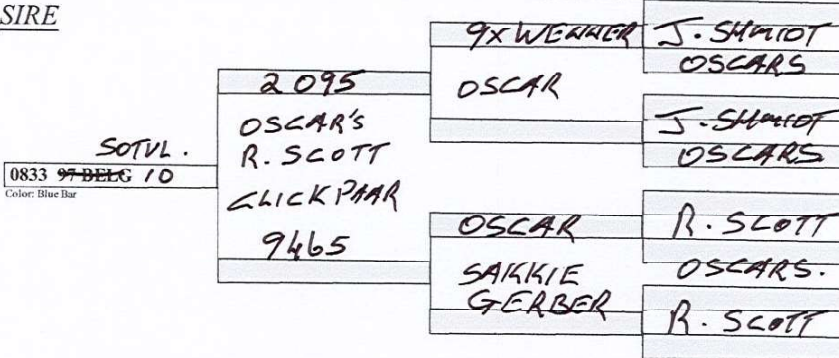 SIRE
SOTVL.
0833 97 BELG 10
Color: Blue Bar
2095
OSCAR'S
R. SCOTT
CLICKPAAR
9465
9X WENNER
OSCAR
OSCAR
SAKKIE
GERBER
J. SHMIDT
OSCARS
J. SHMIDT
OSCARS
R. SCOTT
OSCARS.
R. SCOTT